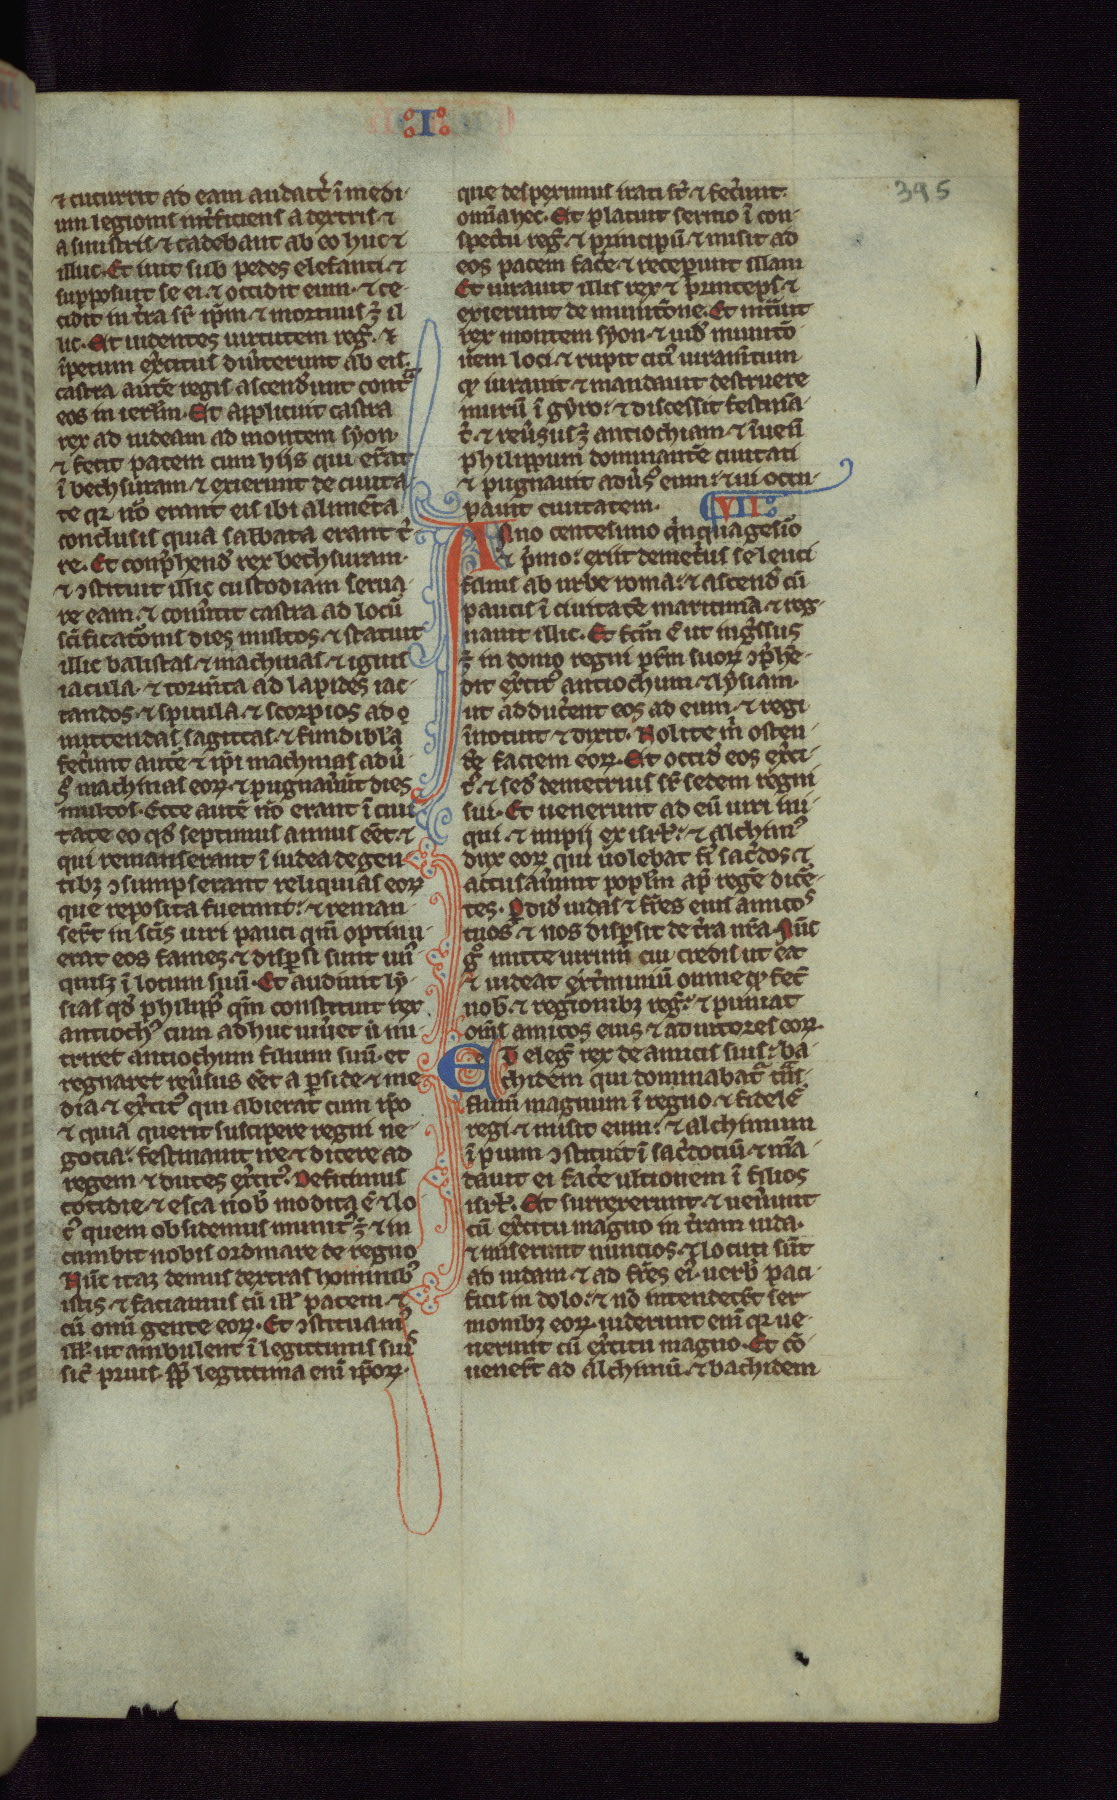 I
395
⁊ cucurrit ad eam audact᷑ ĩ medi-
um legionis int̃ficiens a dextris ⁊
a sinistris ⁊ cadebant ab eo huc ⁊
illuc. Et iuit sub pedes elefanti ⁊
supposuit se ei ⁊ occidit eum ⁊ ce-
cidit in t̃ra sr̃ ip̃m ⁊ mortuus ꝫ il
lic. Et uidentes uirtutem reg̃ ⁊
ĩpetum ex̃citus diũterunt ab eis.
castra autẽ regis ascenderunt cont̃
eos in ierl̃m. Et applicuit castra
rex ad iudeam ad montem syon
⁊ fecit pacem cum hijs qui erãt
ĩ bethsuram ⁊ exierunt de ciuita-
te qꝛ nõ erant eis ibi alimẽta
conclusis quia sabbata erant t̃
re. Et conp̃hend̃ rex bethsuram
⁊ ɔstituit illic custodiam serua-
re eam. ⁊ conũtit castra ad locũ
sc̃ificatõnis dies multos ⁊ statuit
illic balistas ⁊ machinas ⁊ ignis
iacula ⁊ torm̃ta ad lapides iac-
tandos ⁊ spicula ⁊ scorpios ad
mittendas sagittas ⁊ fundibla
fec̃unt autẽ ⁊ ip̃i machinas adũ
s̃ machinas eoꝝ ⁊ pugnauer̃t dies
multos. Esce autẽ nõ erant ĩ ciui
tate eo qd̃ septimus annus eẽt ⁊
qui remanserant ĩ iudea de gen
tibꝫ ɔsumpserant reliquias eoꝝ
que reposita fuerunt ⁊ reman
sert̃ in sc̃is uiri pauci qm̃ optinu-
erat eos fames ⁊ disp̃si sunt un
quisꝫ ĩ locum suũ. Et audiuit ly-
sias qd̃ philipp̃ q̃m constituit rex
antioch᷒ cum adhuc uiũet ũ nu
triret antiochum filium suũ et
regnaret reũsus eẽt a p̃side ⁊ me
dia ⁊ ex̃cit᷒ qui abierat cum ip̃o
⁊ quia querit suscipere regni ne-
gocia. festinauit ire ⁊ dicere ad
regem ⁊ duces ex̃cit᷒. Deficimus
cotidie ⁊ esca nob̃ modica ẽ ⁊ lo
c᷒ quem obsidemus munit᷒ ꝫ ⁊ in
cumbit nobis ordinare de regno
Nũc itaꝫ demus dextras hominib᷒
istis ⁊ faciamus cũ ill̃ pacem ⁊
cũ omi gente eoꝝ. Et ɔstituam᷒
ill̃ ut ambulent ĩ legittimis suis
sic̃ prius. legittima eni ip̃oꝝ
que despeximus irati st̃ ⁊ fec̃unt
omĩa hec. Et placuit sermo ĩ con-
spectu reg̃ ⁊ principũ ⁊ misit ad
eos pacem fac̃e ⁊ receperunt illam
Et iurauit illis rex ⁊ princeps ⁊
exierunt de munitõne. Et int̃uit
rex montem syon ⁊ uid̃ munitõ
nem loci ⁊ rupit cit̃ iuram̃tum
qđ iurauit ⁊ mandauit destruere
murũ ĩ gyro. ⁊ discessit festinã
t̃ ⁊ reũsus ꝫ antiochiam ⁊ ĩuenĩ
philippum dominantẽ ciuitati
⁊ pugnauit adũs᷒ eum ⁊ ui occu-
pauit ciuitatem. VII
Anno centesimo q̃nquagesĩo
⁊ p̃mo exiit demet̃us seleuci
filius ab urbe roma ⁊ ascend̃ cũ
paucis ĩ ciuitatẽ maritimã ⁊ reg-
nauit illic. Et fc̃m ẽ ut ing̃ssus
ꝫ in domo regni p̃rm suoꝝ ɔp̃hẽ-
dit ex̃cit᷒ antiochum ⁊ lysiam
ut adduc̃ent eos ad eum ⁊ regi
ĩnotuit ⁊ dixit. Nolite m̃ osten-
de faciem eoꝝ. Et occid̃ eos ex̃ci-
t᷒ ⁊ sed̃ demetrius sr̃ sedem regni
sui. Et uenerunt ad eũ uiri ini-
qui ⁊ impij ex isrl̃ ⁊ alchim᷒
dux eoꝝ qui uolebat fi᷑ sac̃dos ⁊
accusauerunt popl̃m ap̃ regẽ dicẽ-
tes. Pdid̃ iudas ⁊ fr̃es eius amicos
tuos ⁊ nos disp̃sit de t̃ra nr̃a. Nũc
g̃ mitte uirum cui credis ut eat
⁊ uideat ext̃miniũ omne qđ fec̃
nob̃ ⁊ regionibꝫ reg̃ ⁊ puniat
om̃s amicos eius ⁊ adiutores eoꝝ.
Et eleg̃ rex de amicis suis ba-
chidem qui dominabat᷑ t̃ns
flum̃ magnum ĩ regno ⁊ fidelẽ
regi ⁊ misit eum ⁊ alchimum
ĩpium ɔstituit ĩ sac̃dotiũ ⁊ mã
dauit ei fac̃e ultionem ĩ filios
isrl̃. Et surrexerunt ⁊ uen̄unt
cũ ex̃citu magno in t̃ram iuda
⁊ miserunt nuncios ⁊ locuti sũt
ad iudam ⁊ ad fr̃es ei᷒ uerb̃ paci-
ficis in dolo ⁊ nõ intendert̃ ser
monibꝫ eoꝝ uiderunt eni qꝛ ue-
nerunt cũ ex̃citu magno. Et cõ
uenert̃ ad alchimũ ⁊ bachidem